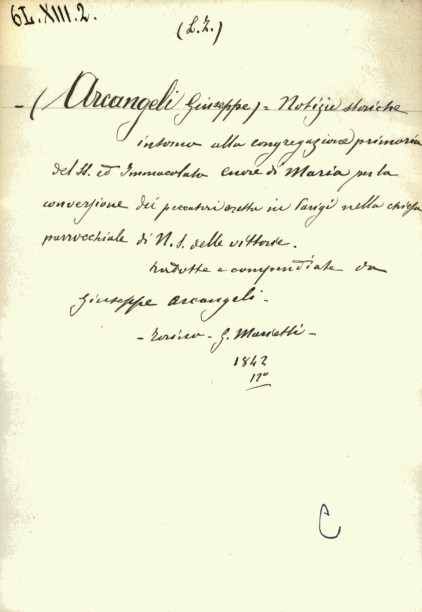 6L.XIII.2.
(L.Z.)
- (Arcangeli Giuseppe) = Notizie storiche
intorno alla congregazione primaria
del SS. ed Immacolato cuore di Maria per la
conversione dei peccatori eretta in Parigi nella chiesa
parrocchiale di N. S. delle vittorie.
tradotte e compendiate da
Giuseppe Arcangeli -
- Torino - G. Marietti -
1842
12º
C